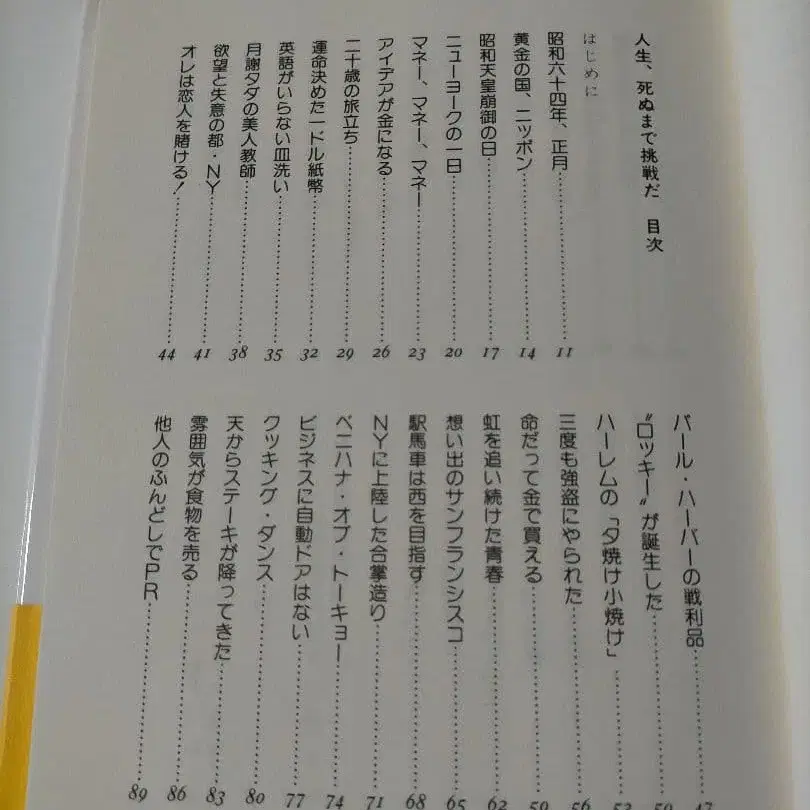 人生、死ぬまで挑戦だ 目次
はじめに
昭和六十四年、正月 11
黄金の国、ニッポン 14
昭和天皇崩御の日 17
ニューヨークの一日 20
マネー、マネー、マネー 23
アイデアが金になる 26
二十歳の旅立ち 29
運命決めた一ドル紙幣 32
英語がいらない皿洗い 35
月謝タダの美人教師 38
欲望と失意の都・NY 41
オレは恋人を賭ける! 44
パール・ハーバーの戦利品 47
〝ロッキー〟が誕生した 50
ハーレムの「夕焼け小焼け」 53
三度も強盗にやられた 56
命だって金で買える 59
虹を追い続けた青春 62
想い出のサンフランシスコ 65
駅馬車は西を目指す 68
NYに上陸した合掌造り 71
ベニハナ・オブ・トーキョー 74
ビジネスに自動ドアはない 77
クッキング・ダンス 80
天からステーキが降ってきた 83
雰囲気が食物を売る 86
他人のふんどしでPR 89